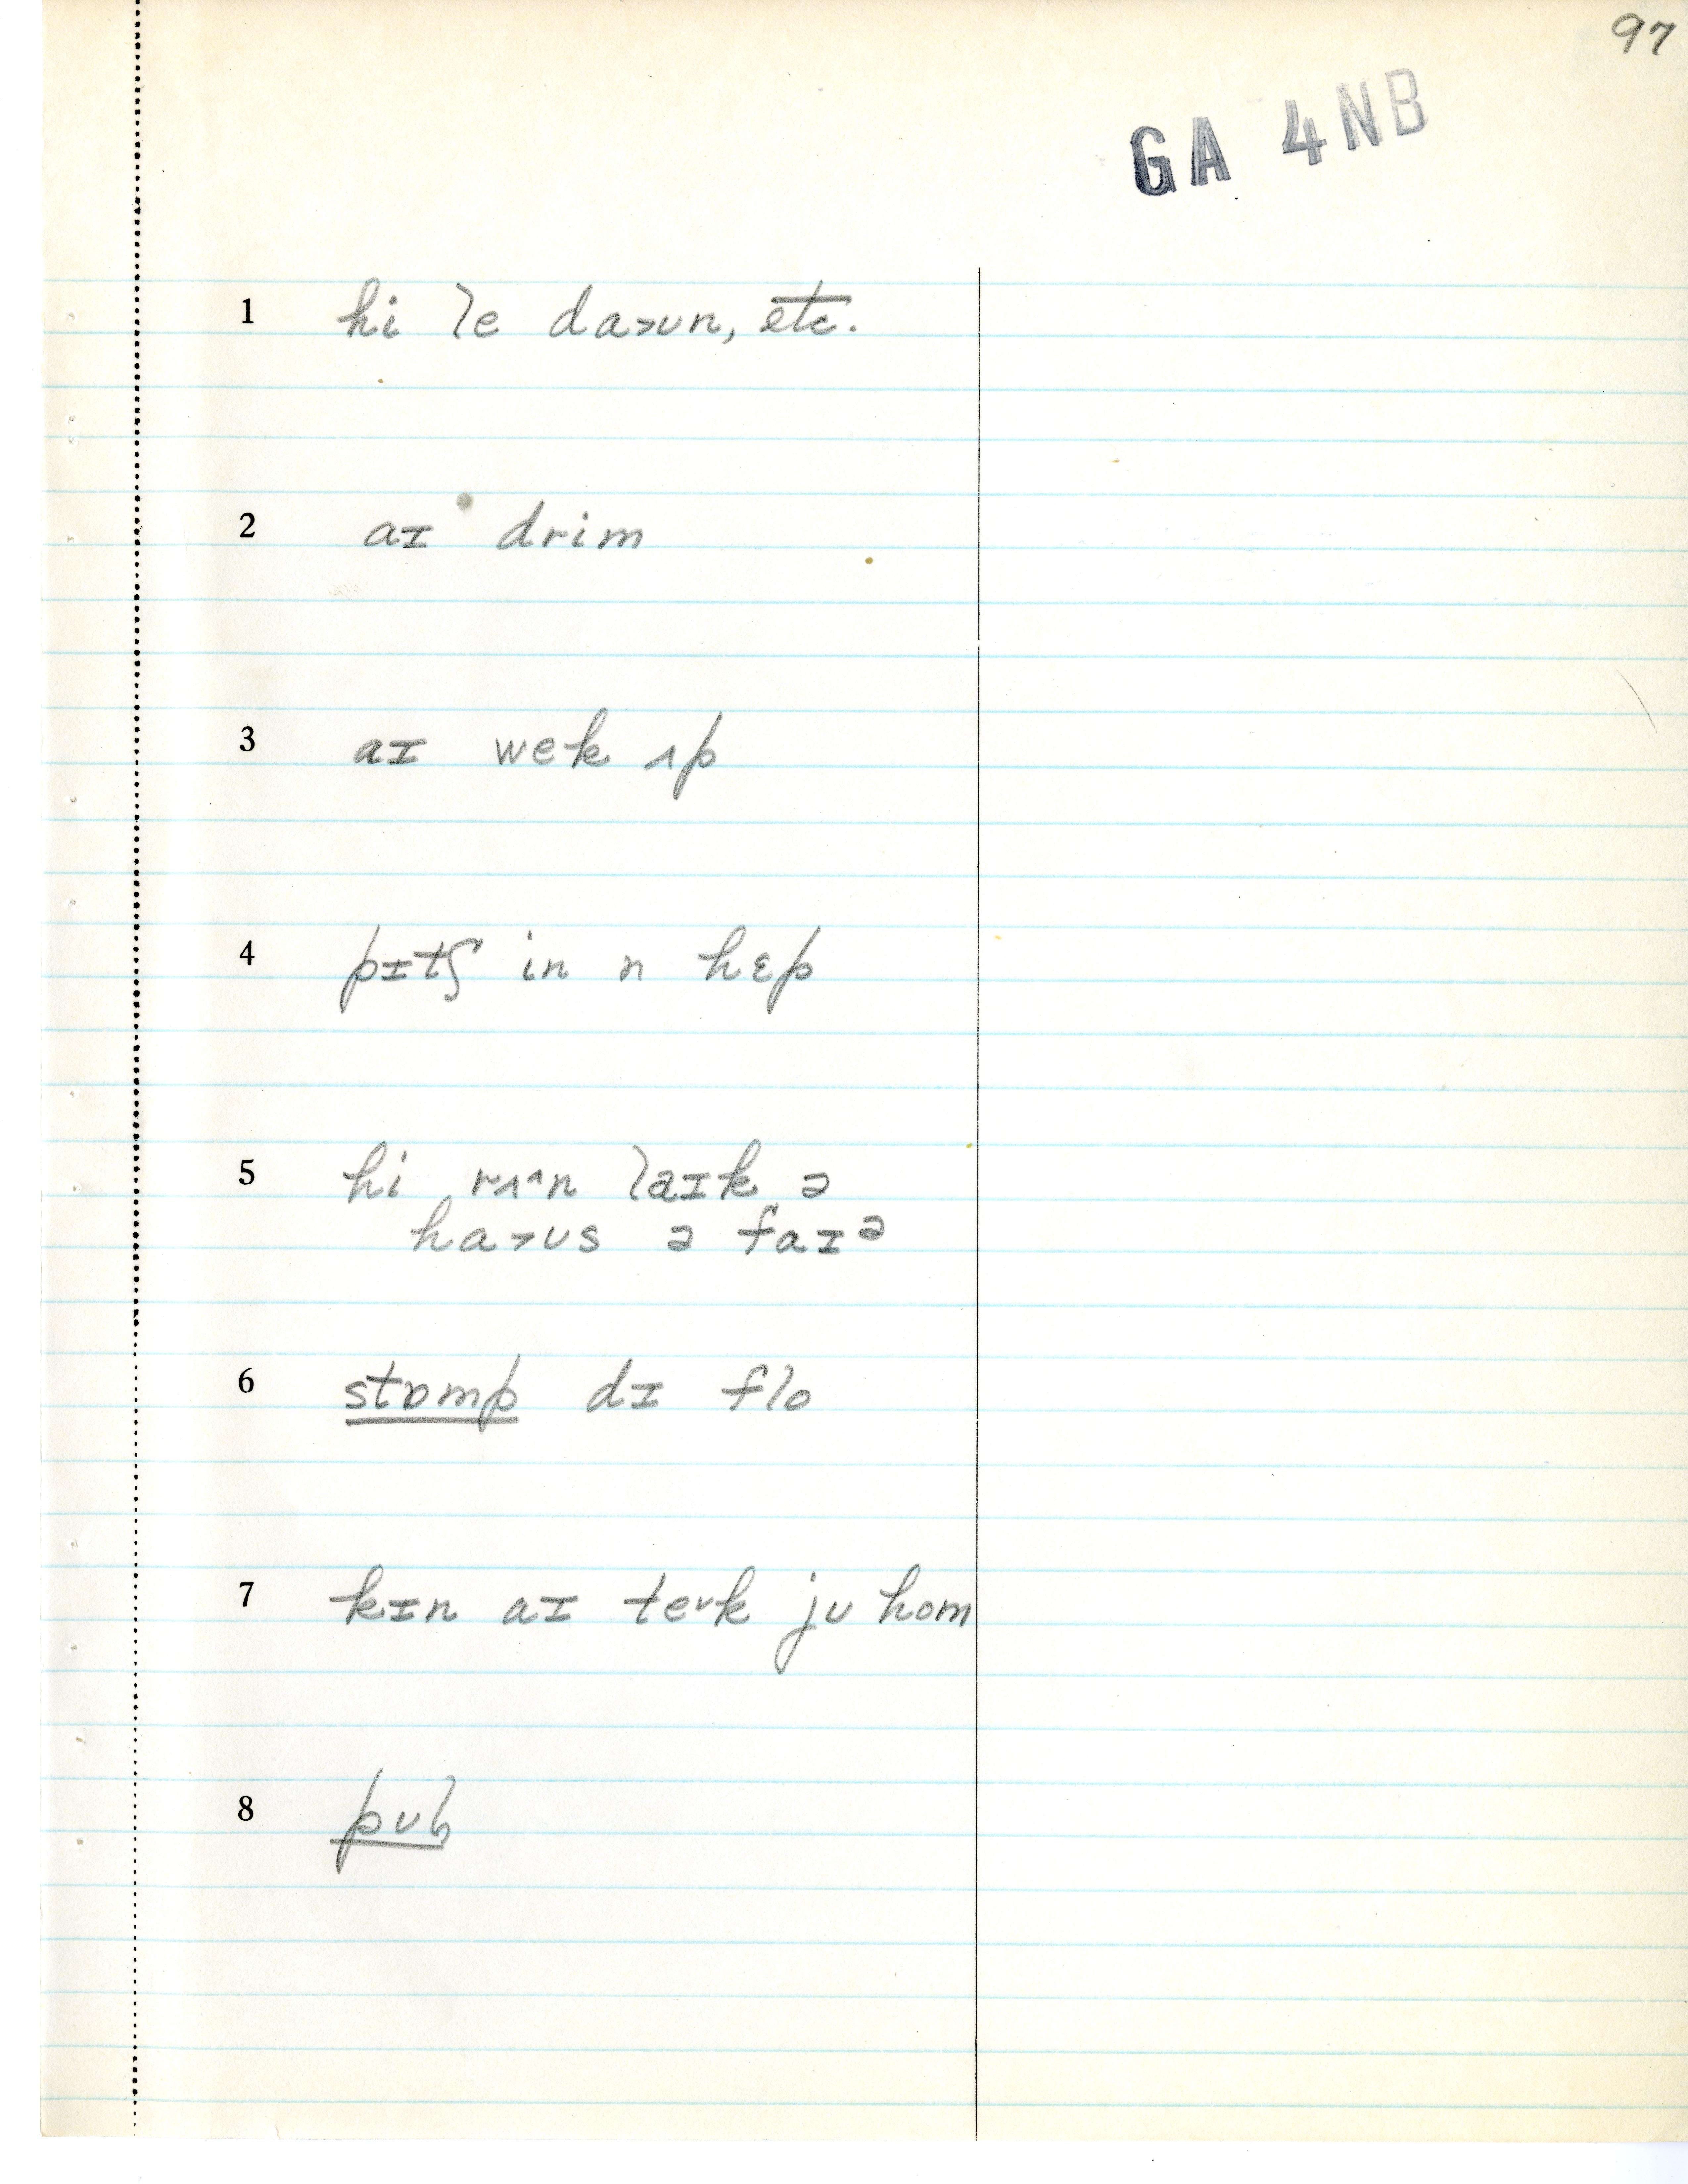 97
GA 4NB
1 hi le da>ʊn, etc.
2 aɪ drim
3 aɪ wek ʌp
4 pɪtʃ in n hɛp
5 hi rʌ^n laɪk ə
ha>ʊs ə faɪᵊ
6 stɒmp dɪ flo
7 kɪn aɪ teᵛk jʊ hom
8 pʊɫ